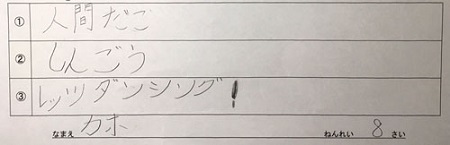 ① 人間だご
② しんごう
③ レッツダンシング!
なまえ カホ ねんれい 8 さい